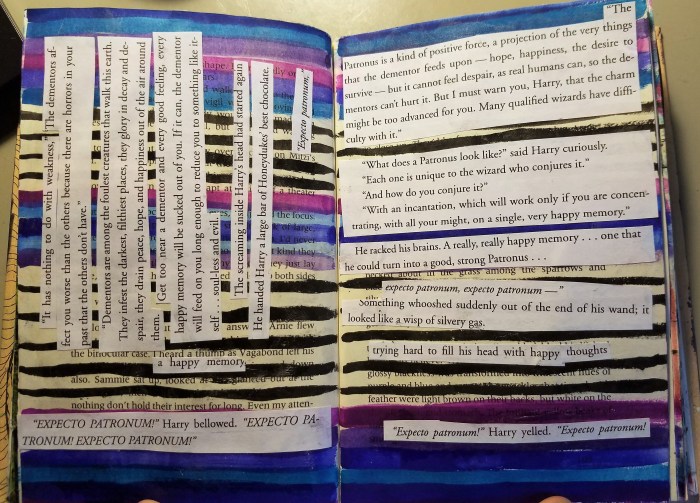 "It has nothing to do with weakness," "The dementors af-
fect you worse than the others because there are horrors in your
past that the others don't have."
"Dementors are among the foulest creatures that walk this earth.
They infest the darkest, filthiest places, they glory in decay and de-
spair, they drain peace, hope, and happiness out of the air around
them. Get too near a dementor and every good feeling, every
happy memory will be sucked out of you. If it can, the dementor
will feed on you long enough to reduce you to something like it-
self . . . soulless and evil.
The screaming inside Harry's head had started again
He handed Harry a large bar of Honeydukes' best chocolate.
"Expecto patronum,"
a happy memory
the binocular case. I heard a thump as Vagabond left his
also. Sammie sat up, looked
nothing don't hold their interest for long. Even my atten-
"EXPECTO PATRONUM!" Harry bellowed. "EXPECTO PA-
TRONUM! EXPECTO PATRONUM!"
"The
Patronus is a kind of positive force, a projection of the very things
that the dementor feeds upon — hope, happiness, the desire to
survive — but it cannot feel despair, as real humans can, so the de-
mentors can't hurt it. But I must warn you, Harry, that the charm
might be too advanced for you. Many qualified wizards have diffi-
culty with it."
"What does a Patronus look like?" said Harry curiously.
"Each one is unique to the wizard who conjures it."
"And how do you conjure it?"
"With an incantation, which will work only if you are concen-
trating, with all your might, on a single, very happy memory."
He racked his brains. A really, really happy memory . . . one that
he could turn into a good, strong Patronus . . .
in the grass among the sparrows and
expecto patronum, expecto patronum —"
Something whooshed suddenly out of the end of his wand; it
looked like a wisp of silvery gas.
trying hard to fill his head with happy thoughts
feather were light brown
"Expecto patronum!" Harry yelled. "Expecto patronum!